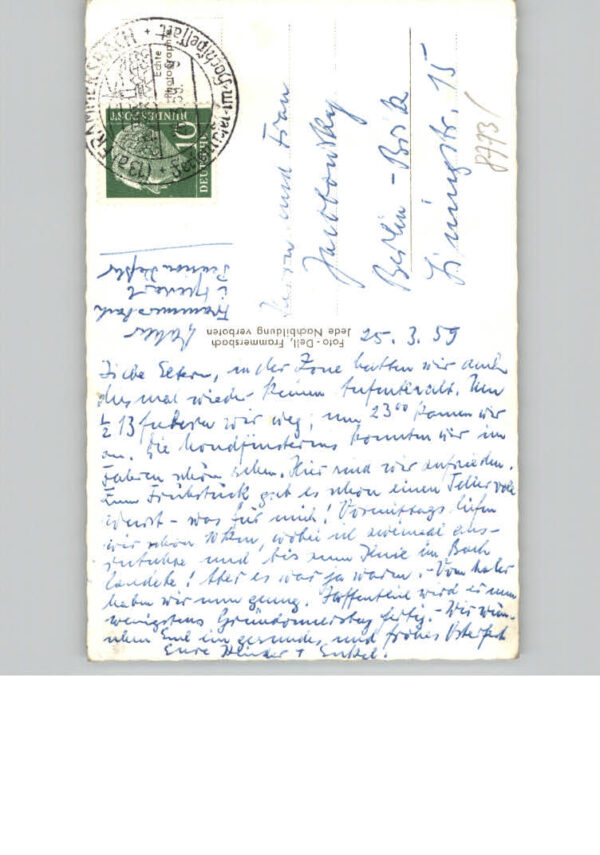 25. 3. 59
Liebe Eltern, in der Zone hatten wir auch
diesmal wieder keinen Aufenthalt. Um
½ 13 fuhren wir weg, um 23⁰⁰ kamen wir
an. Die Mondfinsternis konnten wir im
Fahren schön sehen. Hier sind wir zufrieden.
Zum Frühstück gab es schon einen Teller voll
Wurst - was für mich! Vormittags liefen
wir schon 10 km, wobei ich zweimal aus-
rutschte und bis zum Knie im Bach
landete! Aber es war ja warm. - Vom
haben wir nun genug. Hoffentlich wird er nun
wenigstens Gründonnerstag fertig. - Wir wün-
schen Euch ein gesundes und frohes Osterfest
Eure Kinder + Enkel.
Frammersbach
Pension
Foto - Dell, Frammersbach
Jede Nachbildung verboten
Herrn und Frau
Jacobowsky
Berlin - Britz
15
8773/
DEUTSCHE
BUNDESPOST
10
(13a) FRAMMERSBACH
Echte